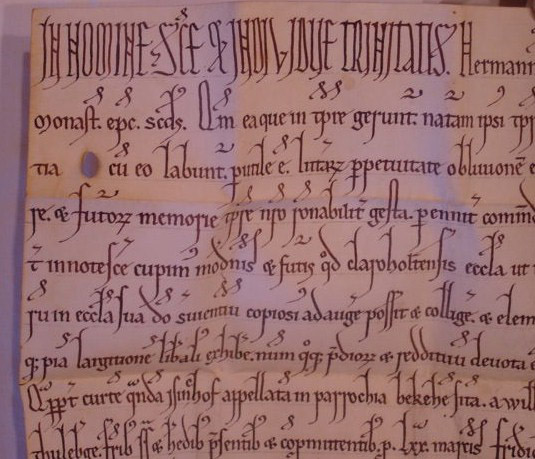 IN NOMINE SCE & INDIVIDUE TRINITATIS. Hermann
monast. epc. scds. Qm ea que in tpre gerunt. natam ipsi tpr
tia cu eo labunt. putile e. litarz ppetuitate oblivione
re. & futorz memorie tpre nro ronabilit gesta. pennit comm
t innotesce cupim modnis & futis qd claroholtensis eccla ut
ru in eccla sua do suientiu copiosi adauge possit & collige. & elem
q; pia largitione libali exhibe. num qq; pdiorz & reddituu devota
Qppt curte qnda ssinhof appellata in parrochia bekehe sita. a will
thulebge. frib ss & hedib psentib & copmittentib p. lxx. marcis frid